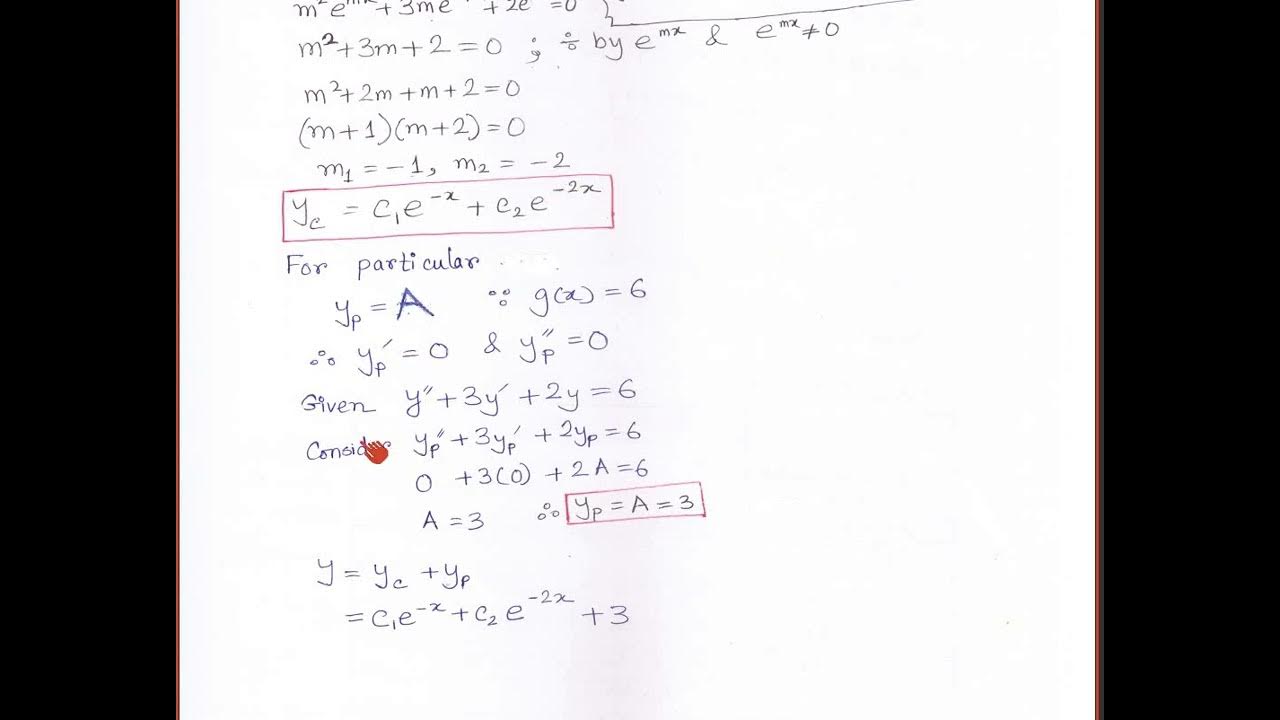 m²e^{mx} + 3me + 2e = 0
m² + 3m + 2 = 0 ; ÷ by e^{mx} & e^{mx} ≠ 0
m² + 2m + m + 2 = 0
(m+1)(m+2) = 0
m₁ = -1, m₂ = -2
y_c = c₁e^{-x} + c₂e^{-2x}
For particular
y_p = A ∵ g(x) = 6
∴ y_p′ = 0 & y_p″ = 0
Given y″ + 3y′ + 2y = 6
y_p″ + 3y_p′ + 2y_p = 6
0 + 3(0) + 2A = 6
A = 3 ∴ y_p = A = 3
y = y_c + y_p
= c₁e^{-x} + c₂e^{-2x} + 3